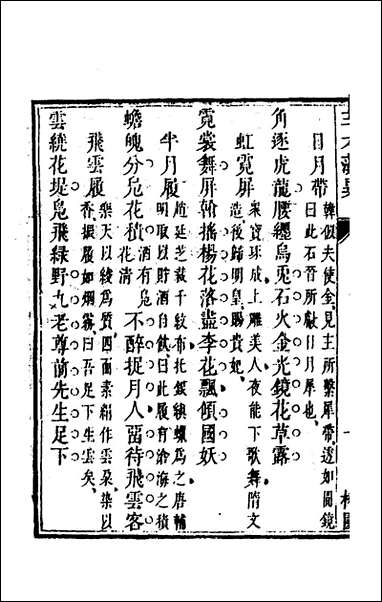 日月帶
韓似夫使金見主所繫犀帶透如圓鏡
曰此石晉所獻日月犀也
角逐虎龍腰纏烏兎石火金光鏡花草露
虹霓屏
衆寶珠成上雕美人夜能下歌舞隋文
造後歸明皇賜貴妃
霓裳舞屏翰播楊花落盡李花飄傾國妖
半月履
趙延芝裁千紋布托銀
螺爲之唐輔
明取以貯酒自飲曰此履有滄海之積
酒有鳧
花清
蟾魄分鳧花積
不醉捉月人畱待飛雲客
飛雲履
樂天以綾爲質四面素絹作雲朶染以
香振履如烟霧曰吾足下生雲矣
雲繞花堤鳧飛綠野九老尊前先生足下